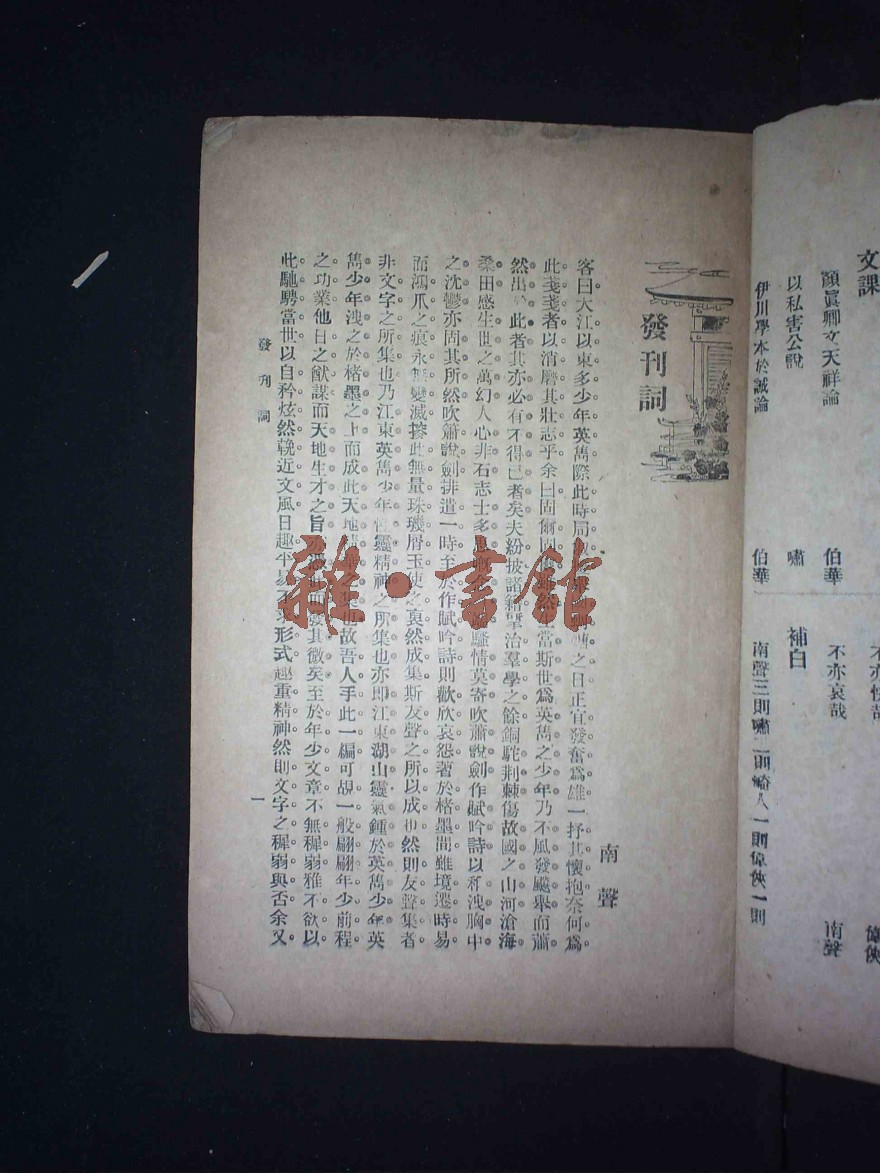 文課
顏眞卿文天祥論 伯華
以私害公說 嘯
伊川學本於誠論 伯華
不亦哀哉 南聲
補白
南聲三則嘯二則崎人一則偉俠一則
偉俠
發刊詞
南聲
客曰大江以東多少年英雋際此時局 之日正宜發奮爲雄一抒其懷抱奈何爲
此戔戔者以消磨其壯志乎余曰固爾固 當斯世爲英雋之少年乃不風發飈舉而蕭
然出於此者其亦必有不得已者矣夫紛披諸籍擘治羣學之餘銅駝荆棘傷故國之山河滄海
桑田感生世之萬幻人心非石志士多 騷情莫寄吹蕭說劍作賦吟詩以 洩胸中
之沈鬱亦固其所然吹簫說劍排遣一時至於作賦吟詩則歡欣哀怨著於楮墨間雖境遷時易
而鴻爪之痕永無變滅擦此無量珠璣屑玉使之裒然成集斯友聲之所以成也然則友聲集者
非文字之所集也乃江東英雋少年性靈精神之所集也亦即江東湖山靈氣鍾於英雋少年英
雋少年洩之於楮墨之上而成此天地 之集也故吾人手此一編可覘一般翩翩年少前程
之功業他日之猷謀而天地生才之旨 發其微矣至於年少文章不無穉弱雅不欲以
此馳騁當世以自矜炫然輓近文風日趣平易不求形式趣重精神然則文字之穉弱與否余又
發刊詞
一
雜·書館